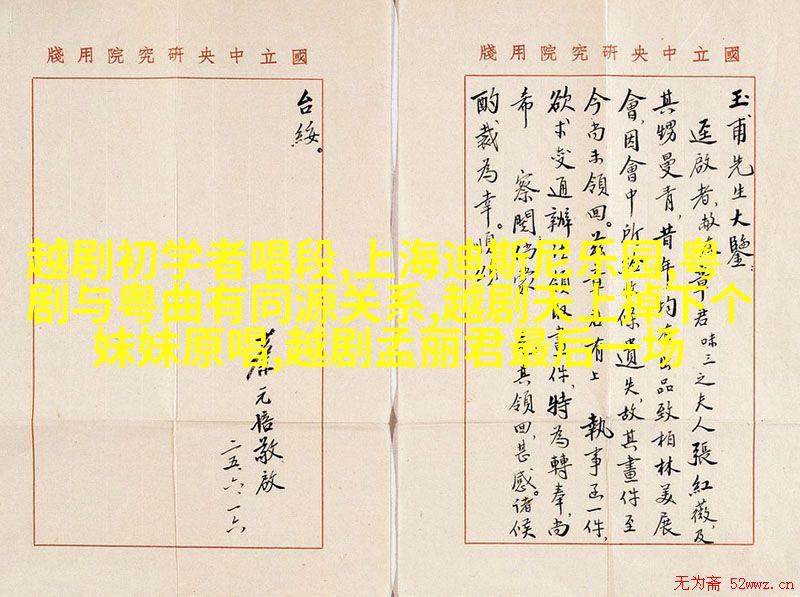 國立中央研究院用牋
玉甫先生大鑒:
逕啟者,敝友章君味三之夫人張紅薇及
其甥曼青,昔年均有出品致柏林美展
會,因會中所收條遺失,故其畫件至
今尚未領回。茲章君有上 執事函一件,
欲求变通辦法領取畫件,特為轉奉,尚
希 察閱倘蒙 其領回,甚感。諸候
酌裁為幸。順頌
國立中央研究院用牋
台綏。
蔡元培敬啟
二五、六、一六
越剧初学者唱段,上海迪斯尼乐园,粤
剧与粤曲有同源关系,越剧天上掉下个
妹妹原唱,越剧孟丽君最后一场
无为斋 52wwz.cn